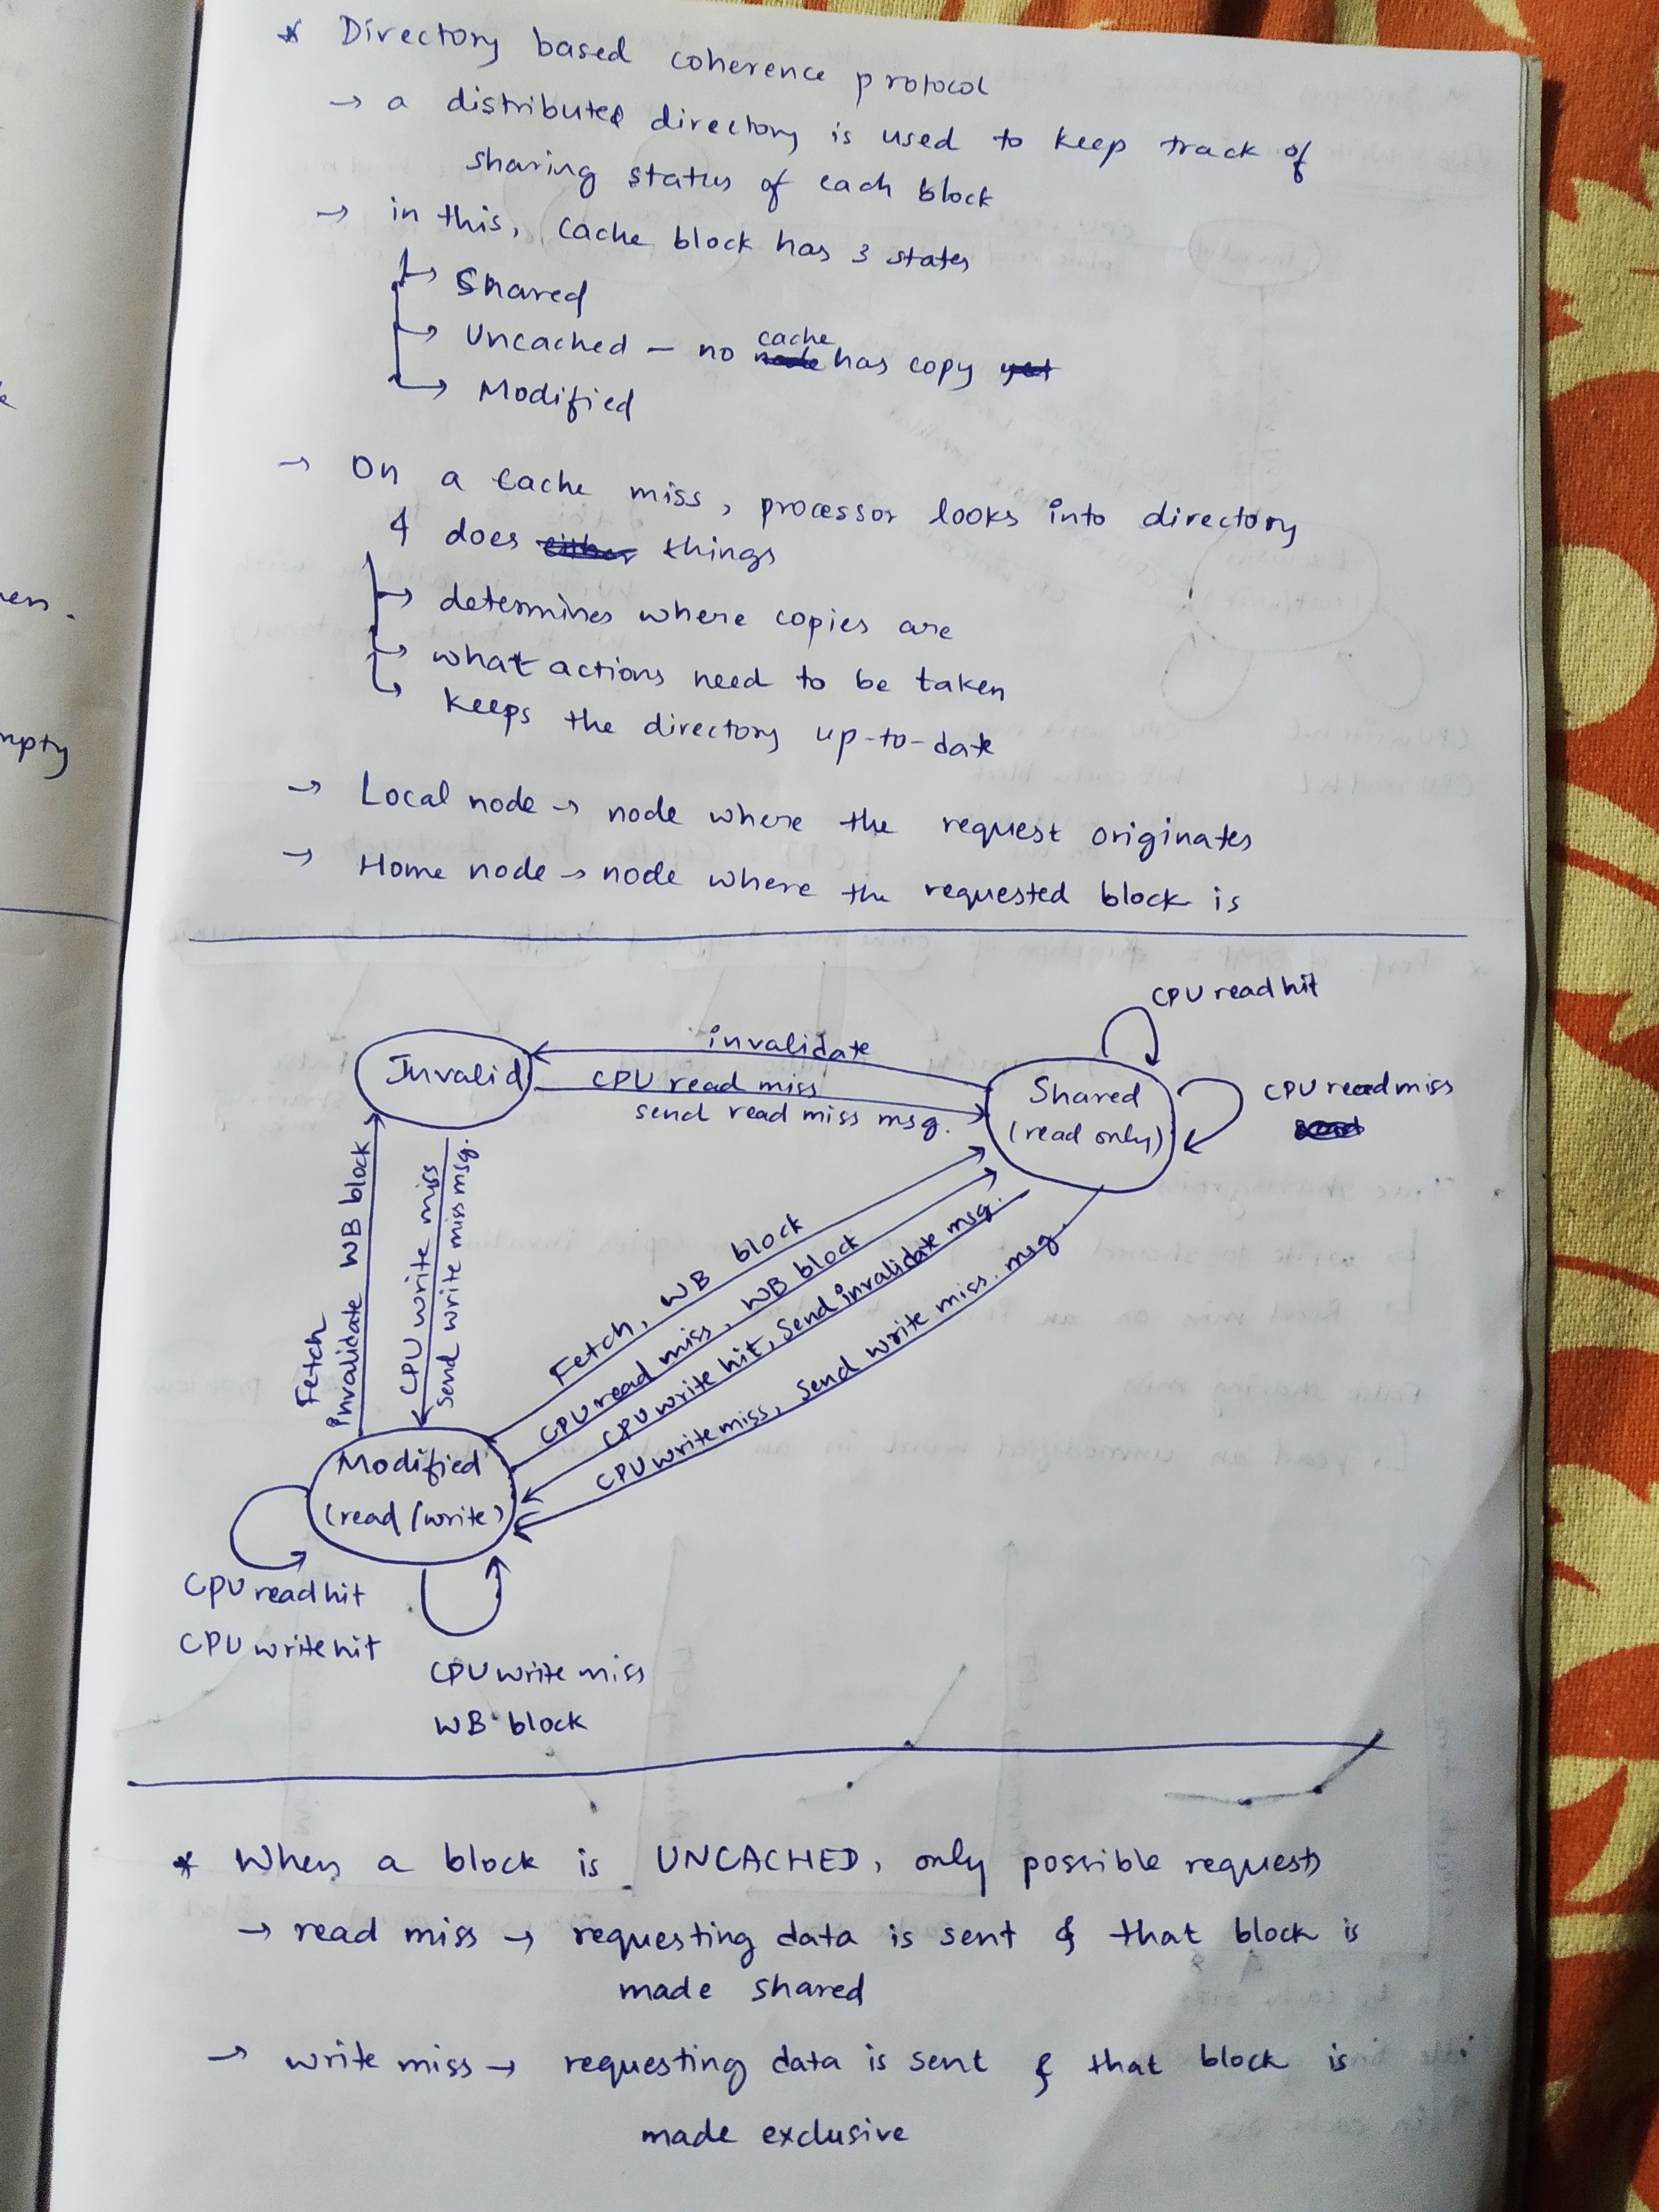 * Directory based coherence protocol
→ a distributed directory is used to keep track of
sharing status of each block
→ in this, cache block has 3 states
→ Shared
→ Uncached - no cache has copy
→ Modified
→ On a cache miss, processor looks into directory
& does things
→ determines where copies are
→ what actions need to be taken
→ keeps the directory up-to-date
→ Local node → node where the request originates
→ Home node → node where the requested block is
CPU read hit
invalidate
Invalid
CPU read miss
send read miss msg.
Shared
(read only)
CPU read miss
Fetch
invalidate WB block
CPU write miss
send write miss msg.
Fetch, WB block
CPU read miss, WB block
CPU write hit, Send invalidate msg.
CPU write miss, send write miss. msg
Modified
(read/write)
CPU read hit
CPU write hit
CPU write miss
WB block
* When a block is UNCACHED, only possible requests
→ read miss → requesting data is sent & that block is
made shared
→ write miss → requesting data is sent & that block is
made exclusive
en.
mpty